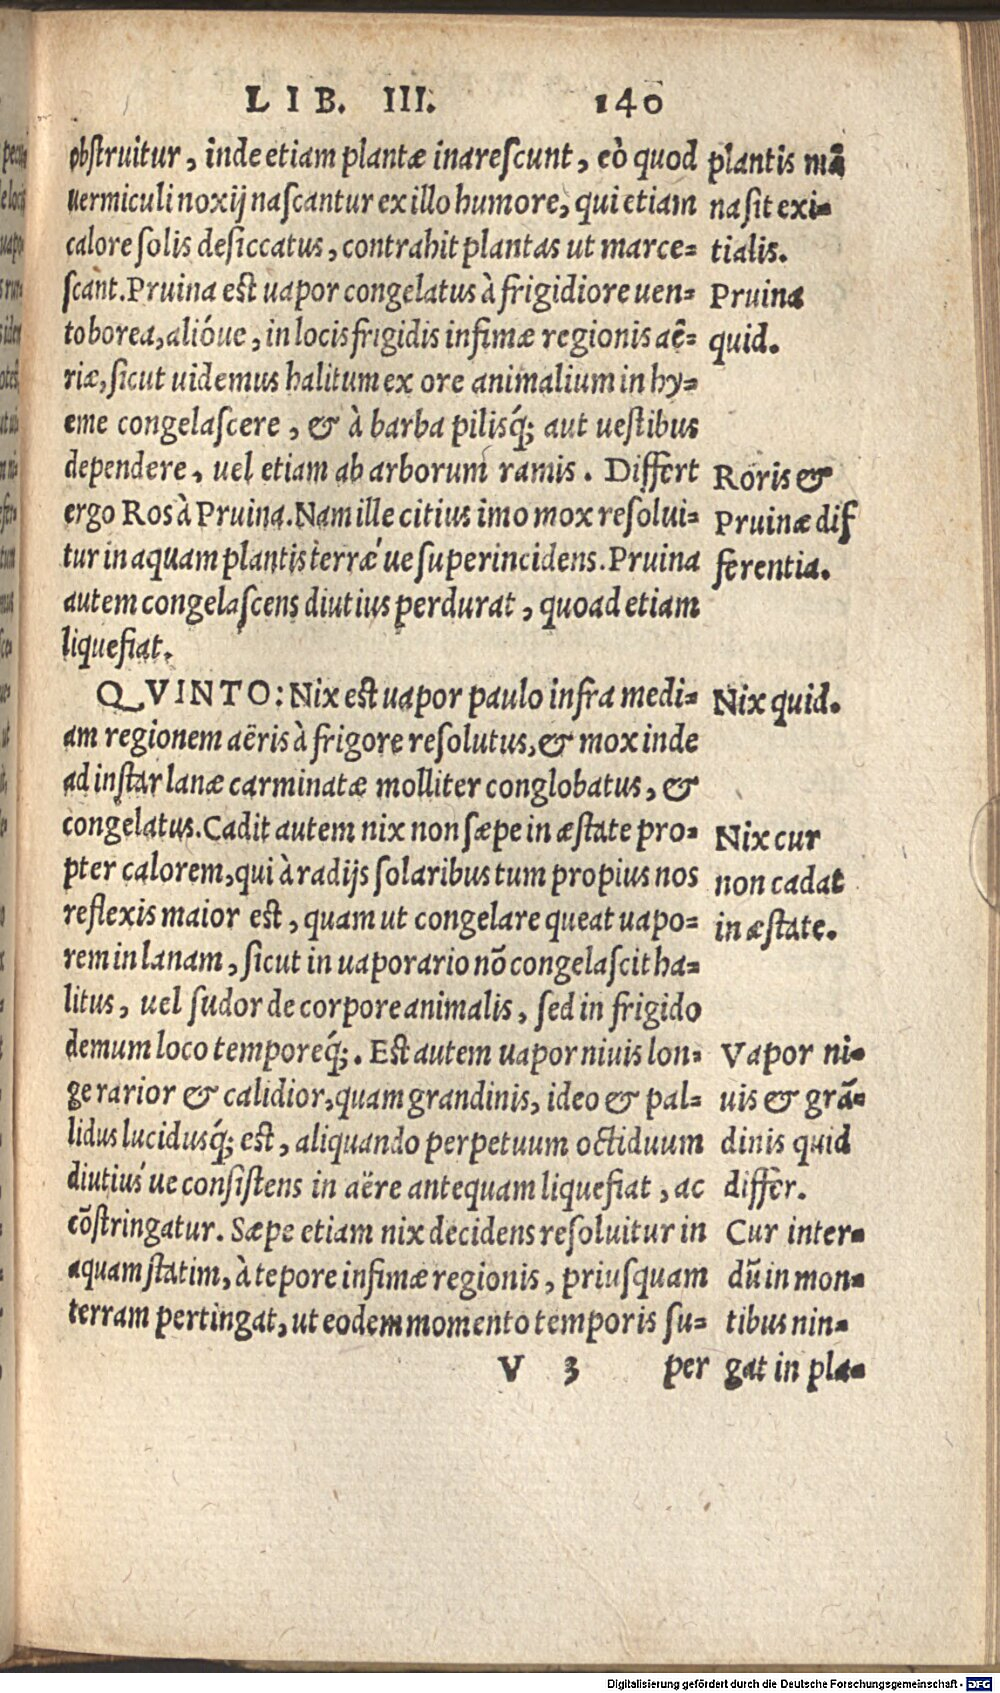 LIB. III. 140
obstruitur, inde etiam plantæ inarescunt, eò quod
uermiculi noxij nascantur ex illo humore, qui etiam
calore solis desiccatus, contrahit plantas ut marce=
scant. Pruina est uapor congelatus à frigidiore uen=
to borea, alióue, in locis frigidis infimæ regionis aë=
riæ, sicut uidemus halitum ex ore animalium in hy=
eme congelascere, & à barba pilisq́; aut uestibus
dependere, uel etiam ab arborum ramis. Differt
ergo Ros à Pruina. Nam ille citius imo mox resolui=
tur in aquam plantis terræ´ue superincidens. Pruina
autem congelascens diutius perdurat, quoad etiam
liquefiat.
QVINTO: Nix est uapor paulo infra medi=
am regionem aëris à frigore resolutus, & mox inde
ad instar lanæ carminatæ molliter conglobatus, &
congelatus. Cadit autem nix non sæpe in æstate pro=
pter calorem, qui à radijs solaribus tum propius nos
reflexis maior est, quam ut congelare queat uapo=
rem in lanam, sicut in uaporario nō congelascit ha=
litus, uel sudor de corpore animalis, sed in frigido
demum loco temporeq́;. Est autem uapor niuis lon=
ge rarior & calidior, quam grandinis, ideo & pal=
lidus lucidusq́; est, aliquando perpetuum octiduum
diutius´ue consistens in aëre antequam liquefiat, ac
cōstringatur. Sæpe etiam nix decidens resoluitur in
aquam statim, à tepore infimæ regionis, priusquam
terram pertingat, ut eodem momento temporis su=
V 3 per
plantis mā
na sit exi=
tialis.
Pruina
quid.
Roris &
Pruinæ dif
ferentia.
Nix quid.
Nix cur
non cadat
in æstate.
Vapor ni=
uis & grā=
dinis quid
differ.
Cur inter=
dū in mon=
tibus nin=
gat in pla=
Digitalisierung gefördert durch die Deutsche Forschungsgemeinschaft - DFG